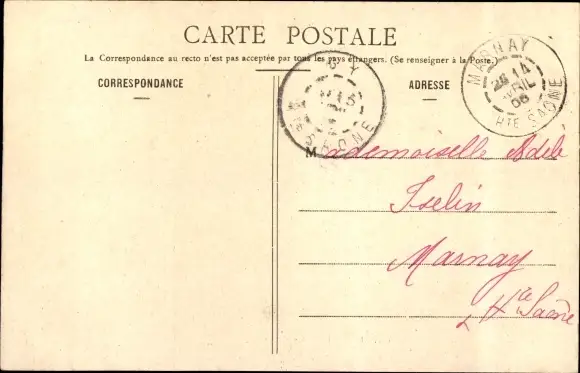 CARTE POSTALE
La Correspondance au recto n'est pas acceptée par tous les pays étrangers. (Se renseigner à la Poste.)
CORRESPONDANCE
ADRESSE
MARNAY
14
AVRIL
06
HTE SAÔNE
Mademoiselle Adèle
Iselin
Marnay
Hte Saône